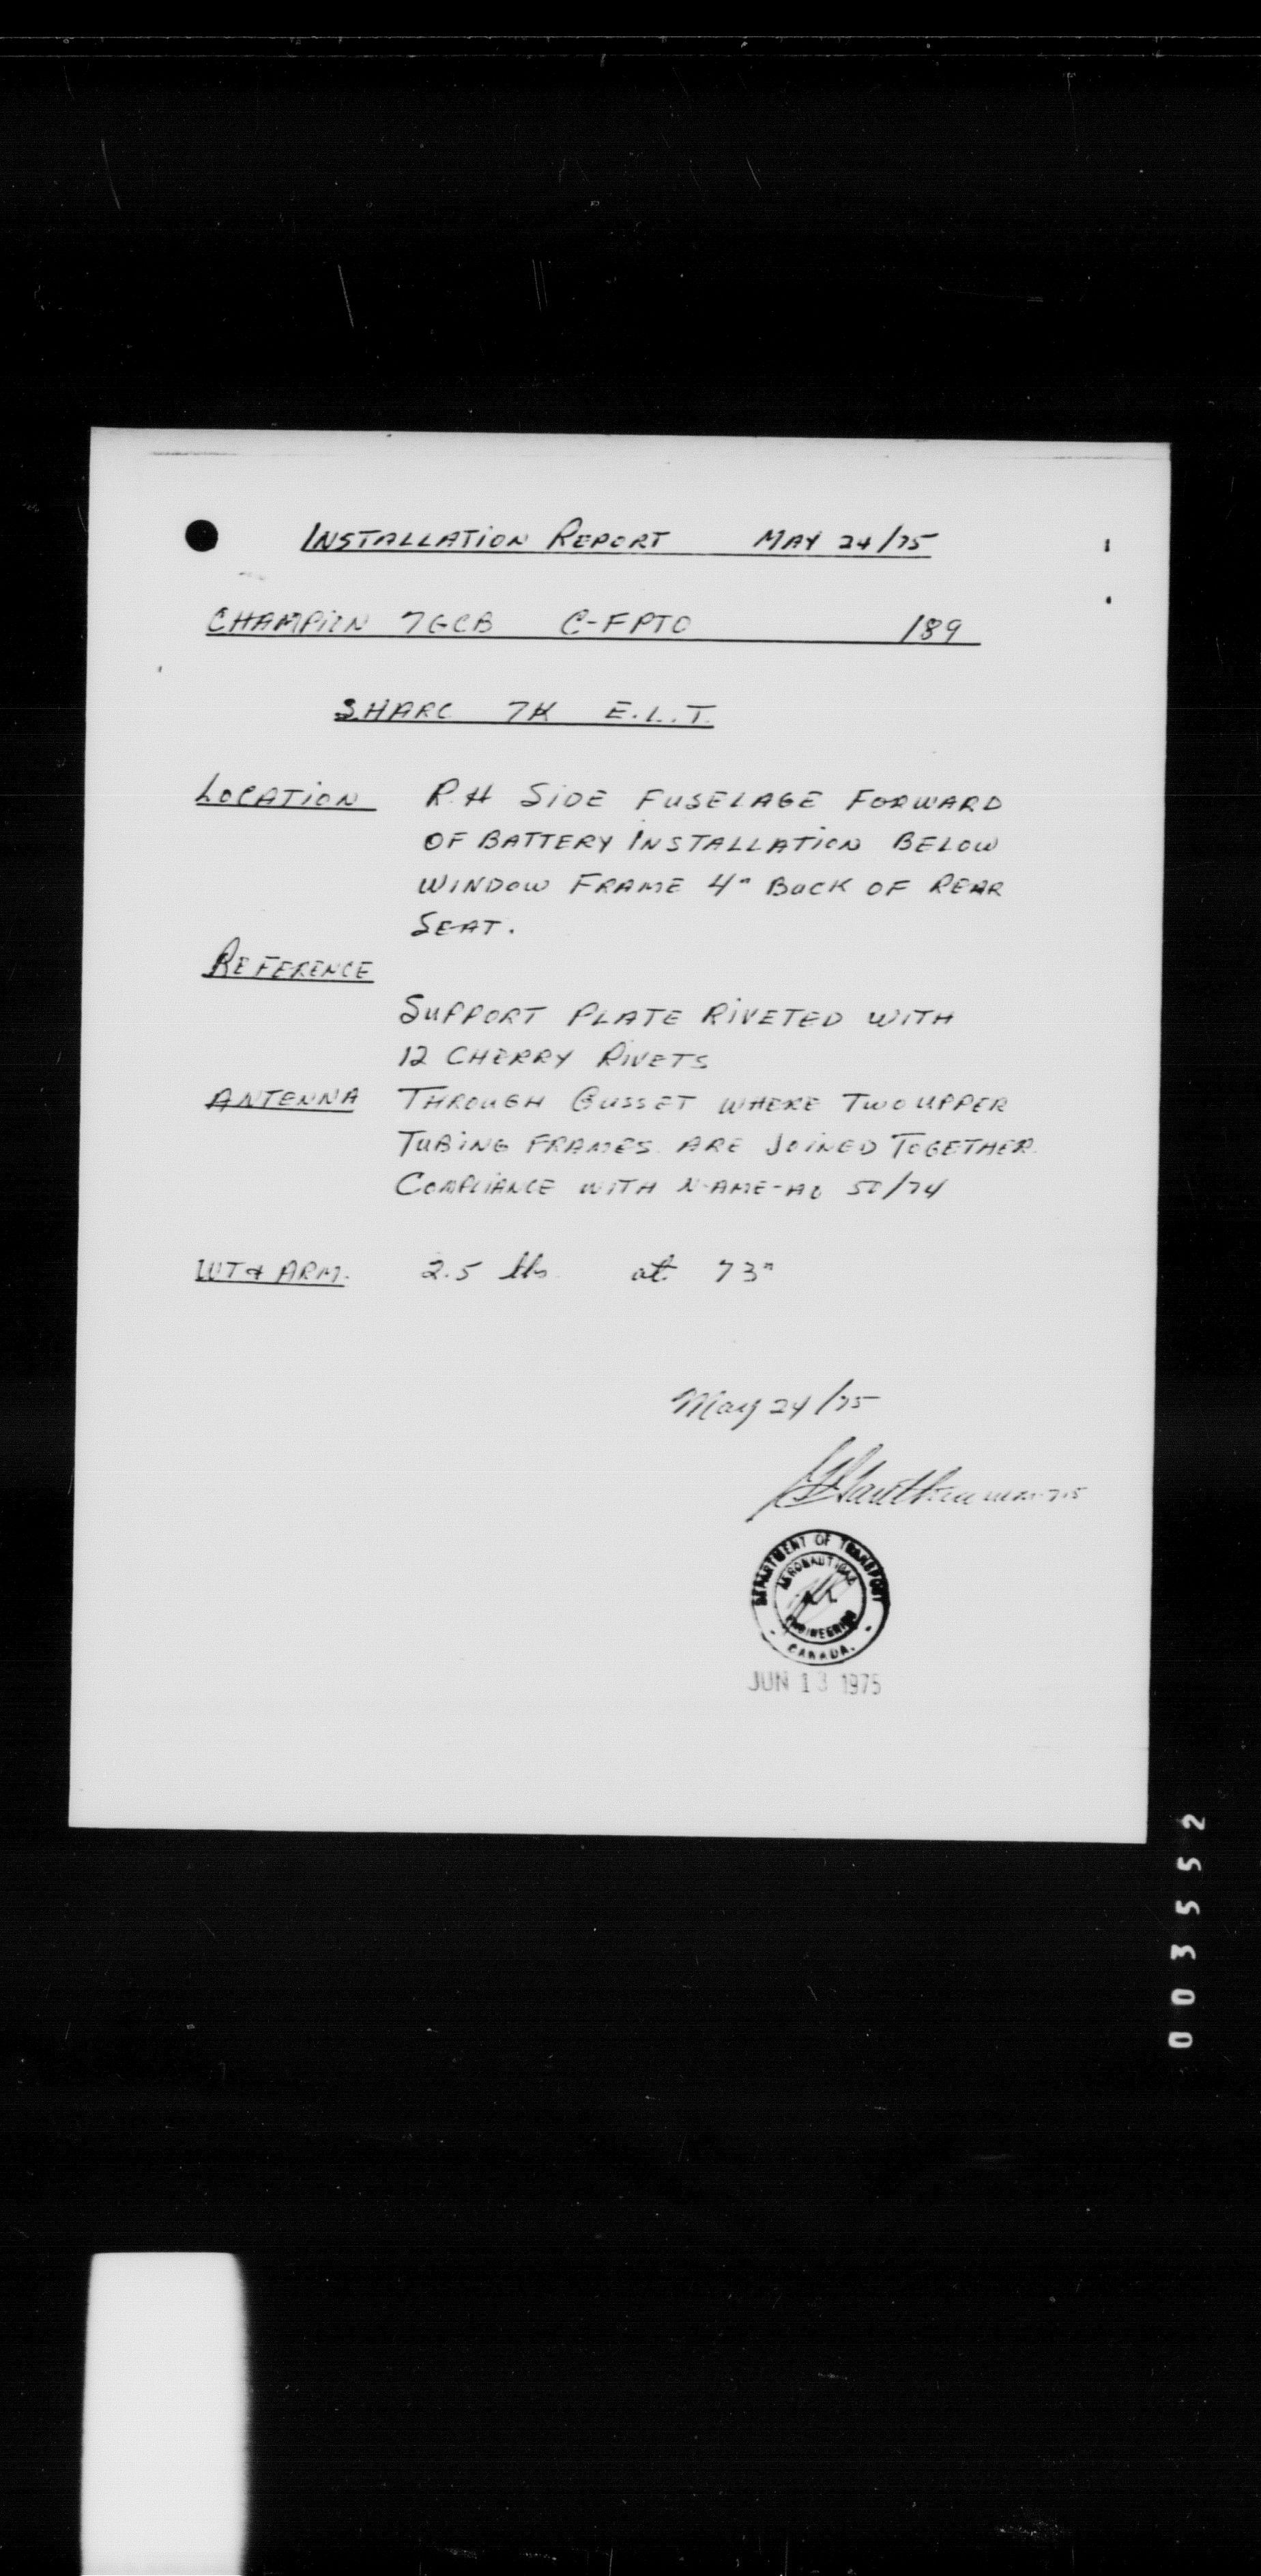 INSTALLATION REPORT MAY 24/75
CHAMPION 7GCB C-FPTO 189
SHARC 7K E.L.T.
LOCATION R.H SIDE FUSELAGE FORWARD
OF BATTERY INSTALLATION BELOW
WINDOW FRAME 4" BACK OF REAR
SEAT.
REFERENCE
SUPPORT PLATE RIVETED WITH
12 CHERRY RIVETS
ANTENNA THROUGH GUSSET WHERE TWO UPPER
TUBING FRAMES ARE JOINED TOGETHER
COMPLIANCE WITH N-AME-AO 50/74
WT & ARM. 2.5 lbs at 73"
May 24/75
DEPARTMENT OF TRANSPORT
AERONAUTICAL
ENGINEERING
CANADA.
JUN 13 1975
003552